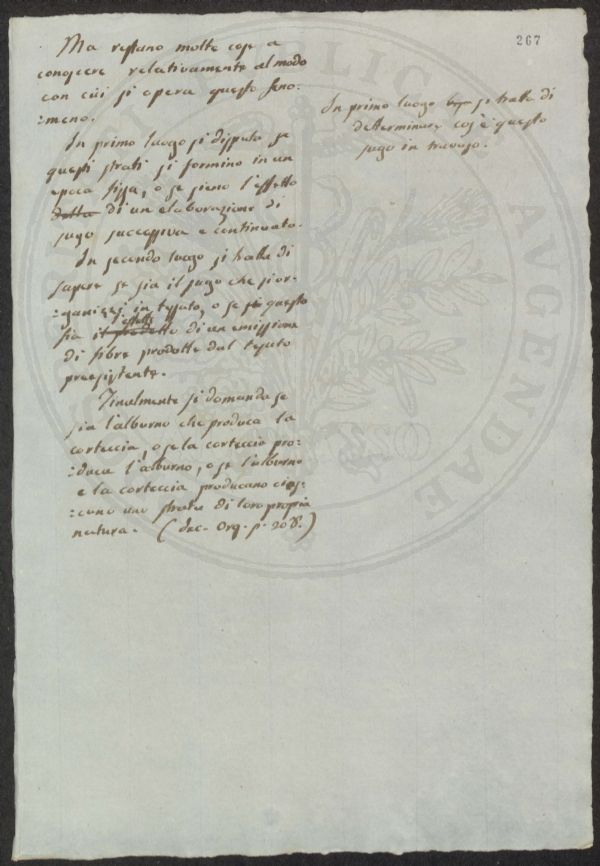 267
Ma restano molte cose a
conoscere relativamente al modo
con cui si opera questo feno-
:meno.
In primo luogo si disputa se
questi strati si formino in un
epoca fissa, o se sieno l'effetto
della di un elaborazione di
sugo successiva e continuata.
In secondo luogo si tratta di
sapere se sia il sugo che si or-
:ganizzi in tessuto, o se sia questo
effetto
sia il prodotto di un emissione
di fibre prodotte dal tessuto
preesistente.
Finalmente si domanda se
sia l'alburno che produca la
corteccia, o se la corteccia pro:
:duca l'alburno, o se l'alburno
e la corteccia producano cias:
:cuno uno strato di loro propria
natura. (dec. Org. p. 208.)
In primo luogo si tratta di
determinare cos'è questo
sugo in travaso.
PUBLICAE
AVGENDAE